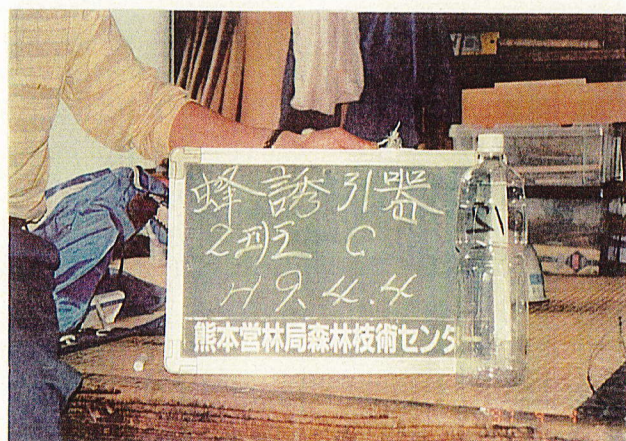 蜂誘引器
2班 C
H9.4.4
熊本営林局森林技術センター